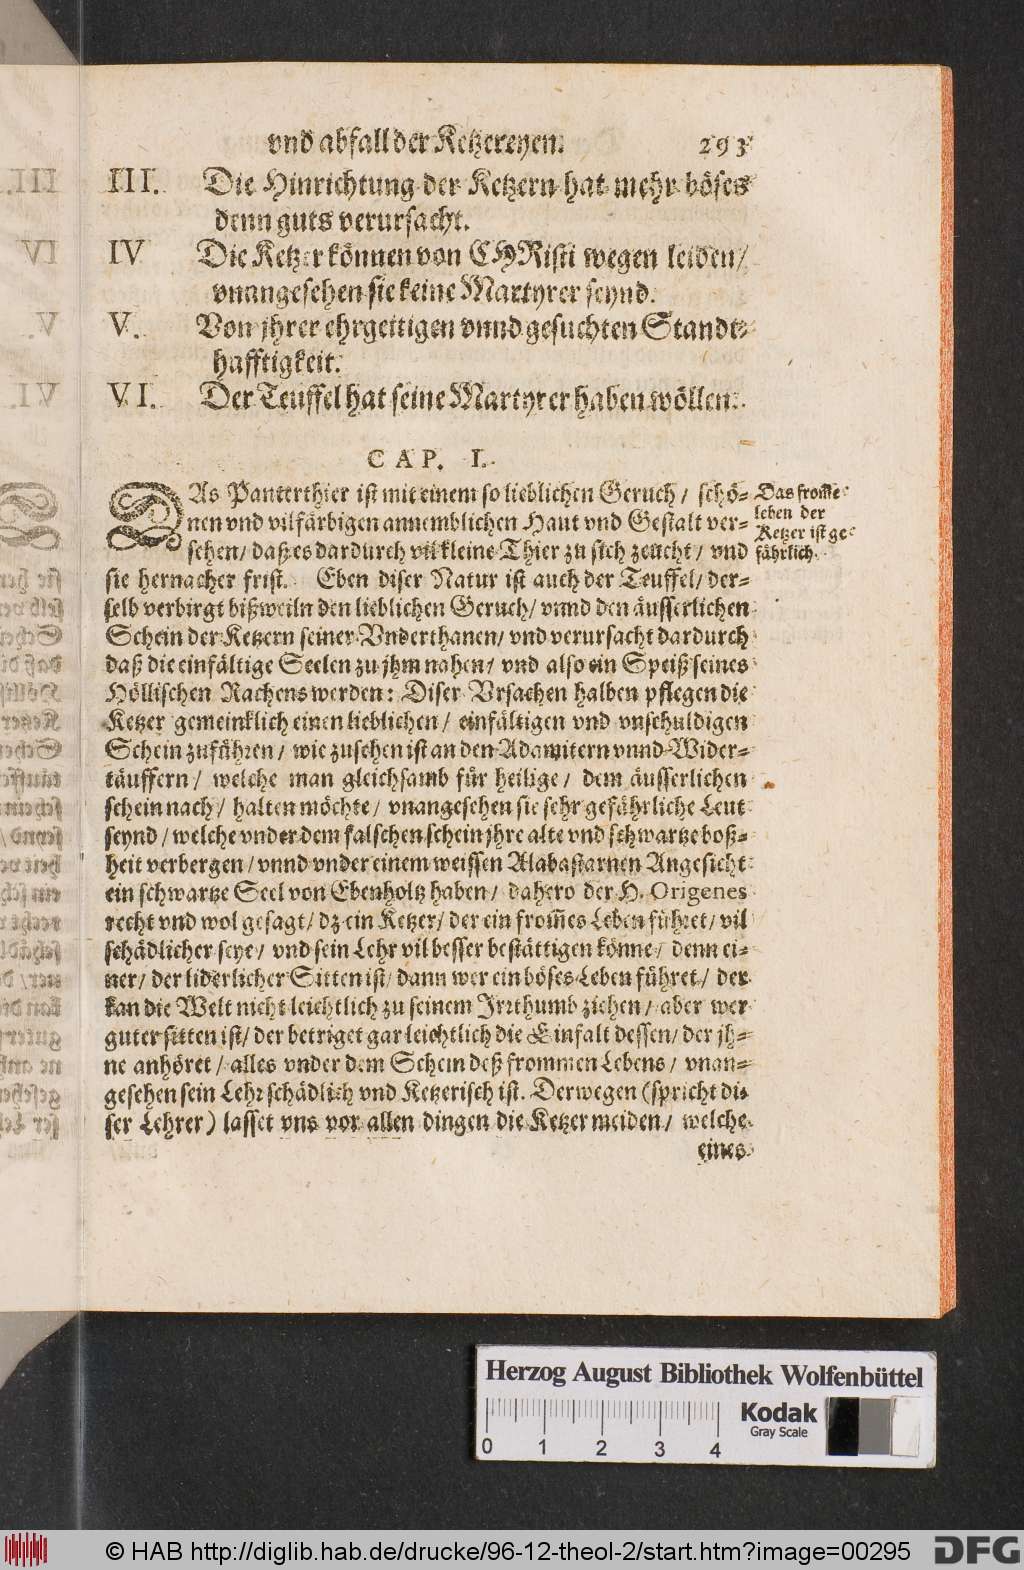 vnd abfall der Ketzereyen. 293
III. Die Hinrichtung der Ketzern hat mehr böses
denn guts verursacht.
IV Die Ketzer können von CHRisti wegen leiden/
vnangesehen sie keine Martyrer seynd.
V. Von jhrer ehrgeitigen vnnd gesuchten Standt-
hafftigkeit.
VI. Der Teuffel hat seine Martyrer haben wöllen.
CAP. I.
DAs Panterthier ist mit einem so lieblichen Geruch/ schö-
nen vnd vilfärbigen annemblichen Haut vnd Gestalt ver-
sehen/ daß es dardurch vil kleine Thier zu sich zeucht/ vnd
sie hernacher frist. Eben diser Natur ist auch der Teuffel/ der-
selb verbirgt bißweiln den lieblichen Geruch/ vnnd den äusserlichen
Schein der Ketzern seiner Vnderthanen/ vnd verursacht dardurch
daß die einfältige Seelen zu jhm nahen/ vnd also ein Speiß seines
Höllischen Rachens werden: Diser Vrsachen halben pflegen die
Ketzer gemeinklich einen lieblichen/ einfältigen vnd vnschuldigen
Schein zuführen/ wie zusehen ist an den Adamitern vnnd Wider-
täuffern/ welche man gleichsamb für heilige/ dem äusserlichen
schein nach/ halten möchte/ vnangesehen sie sehr gefährliche Leut
seynd/ welche vnder dem falschen schein jhre alte vnd schwartze boß-
heit verbergen/ vnnd vnder einem weissen Alabastarnen Angesicht
ein schwartze Seel von Ebenholtz haben/ dahero der H. Origenes
recht vnd wol gesagt/ dz ein Ketzer/ der ein from̃es Leben führet/ vil
schädlicher seye/ vnd sein Lehr vil besser bestättigen könne/ denn ei-
ner/ der liderlicher Sitten ist/ dann wer ein böses Leben führet/ der
kan die Welt nicht leichtlich zu seinem Irrthumb ziehen/ aber wer
guter sitten ist/ der betriget gar leichtlich die Einfalt dessen/ der jh-
ne anhöret/ alles vnder dem Schein deß frommen Lebens/ vnan-
gesehen sein Lehr schädlich vnd Ketzerisch ist. Derwegen (spricht di-
ser Lehrer) lasset vns vor allen dingen die Ketzer meiden/ welche
eines
Das from̃e
leben der
Ketzer ist ge-
fährlich.
Herzog August Bibliothek Wolfenbüttel
0 1 2 3 4
Kodak
Gray Scale
© HAB http://diglib.hab.de/drucke/96-12-theol-2/start.htm?image=00295
DFG